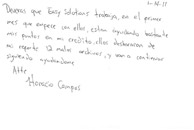 Deveras que Easy Solutions trabaja, en el primer
mes que empese con ellos, estan ayudando bastante
mis puntos en mi credito, ellos deshicieron de
mi reporte 12 malos archivos, y van a continuar
siguiendo ayudandome
Atte.
Horacio Campos